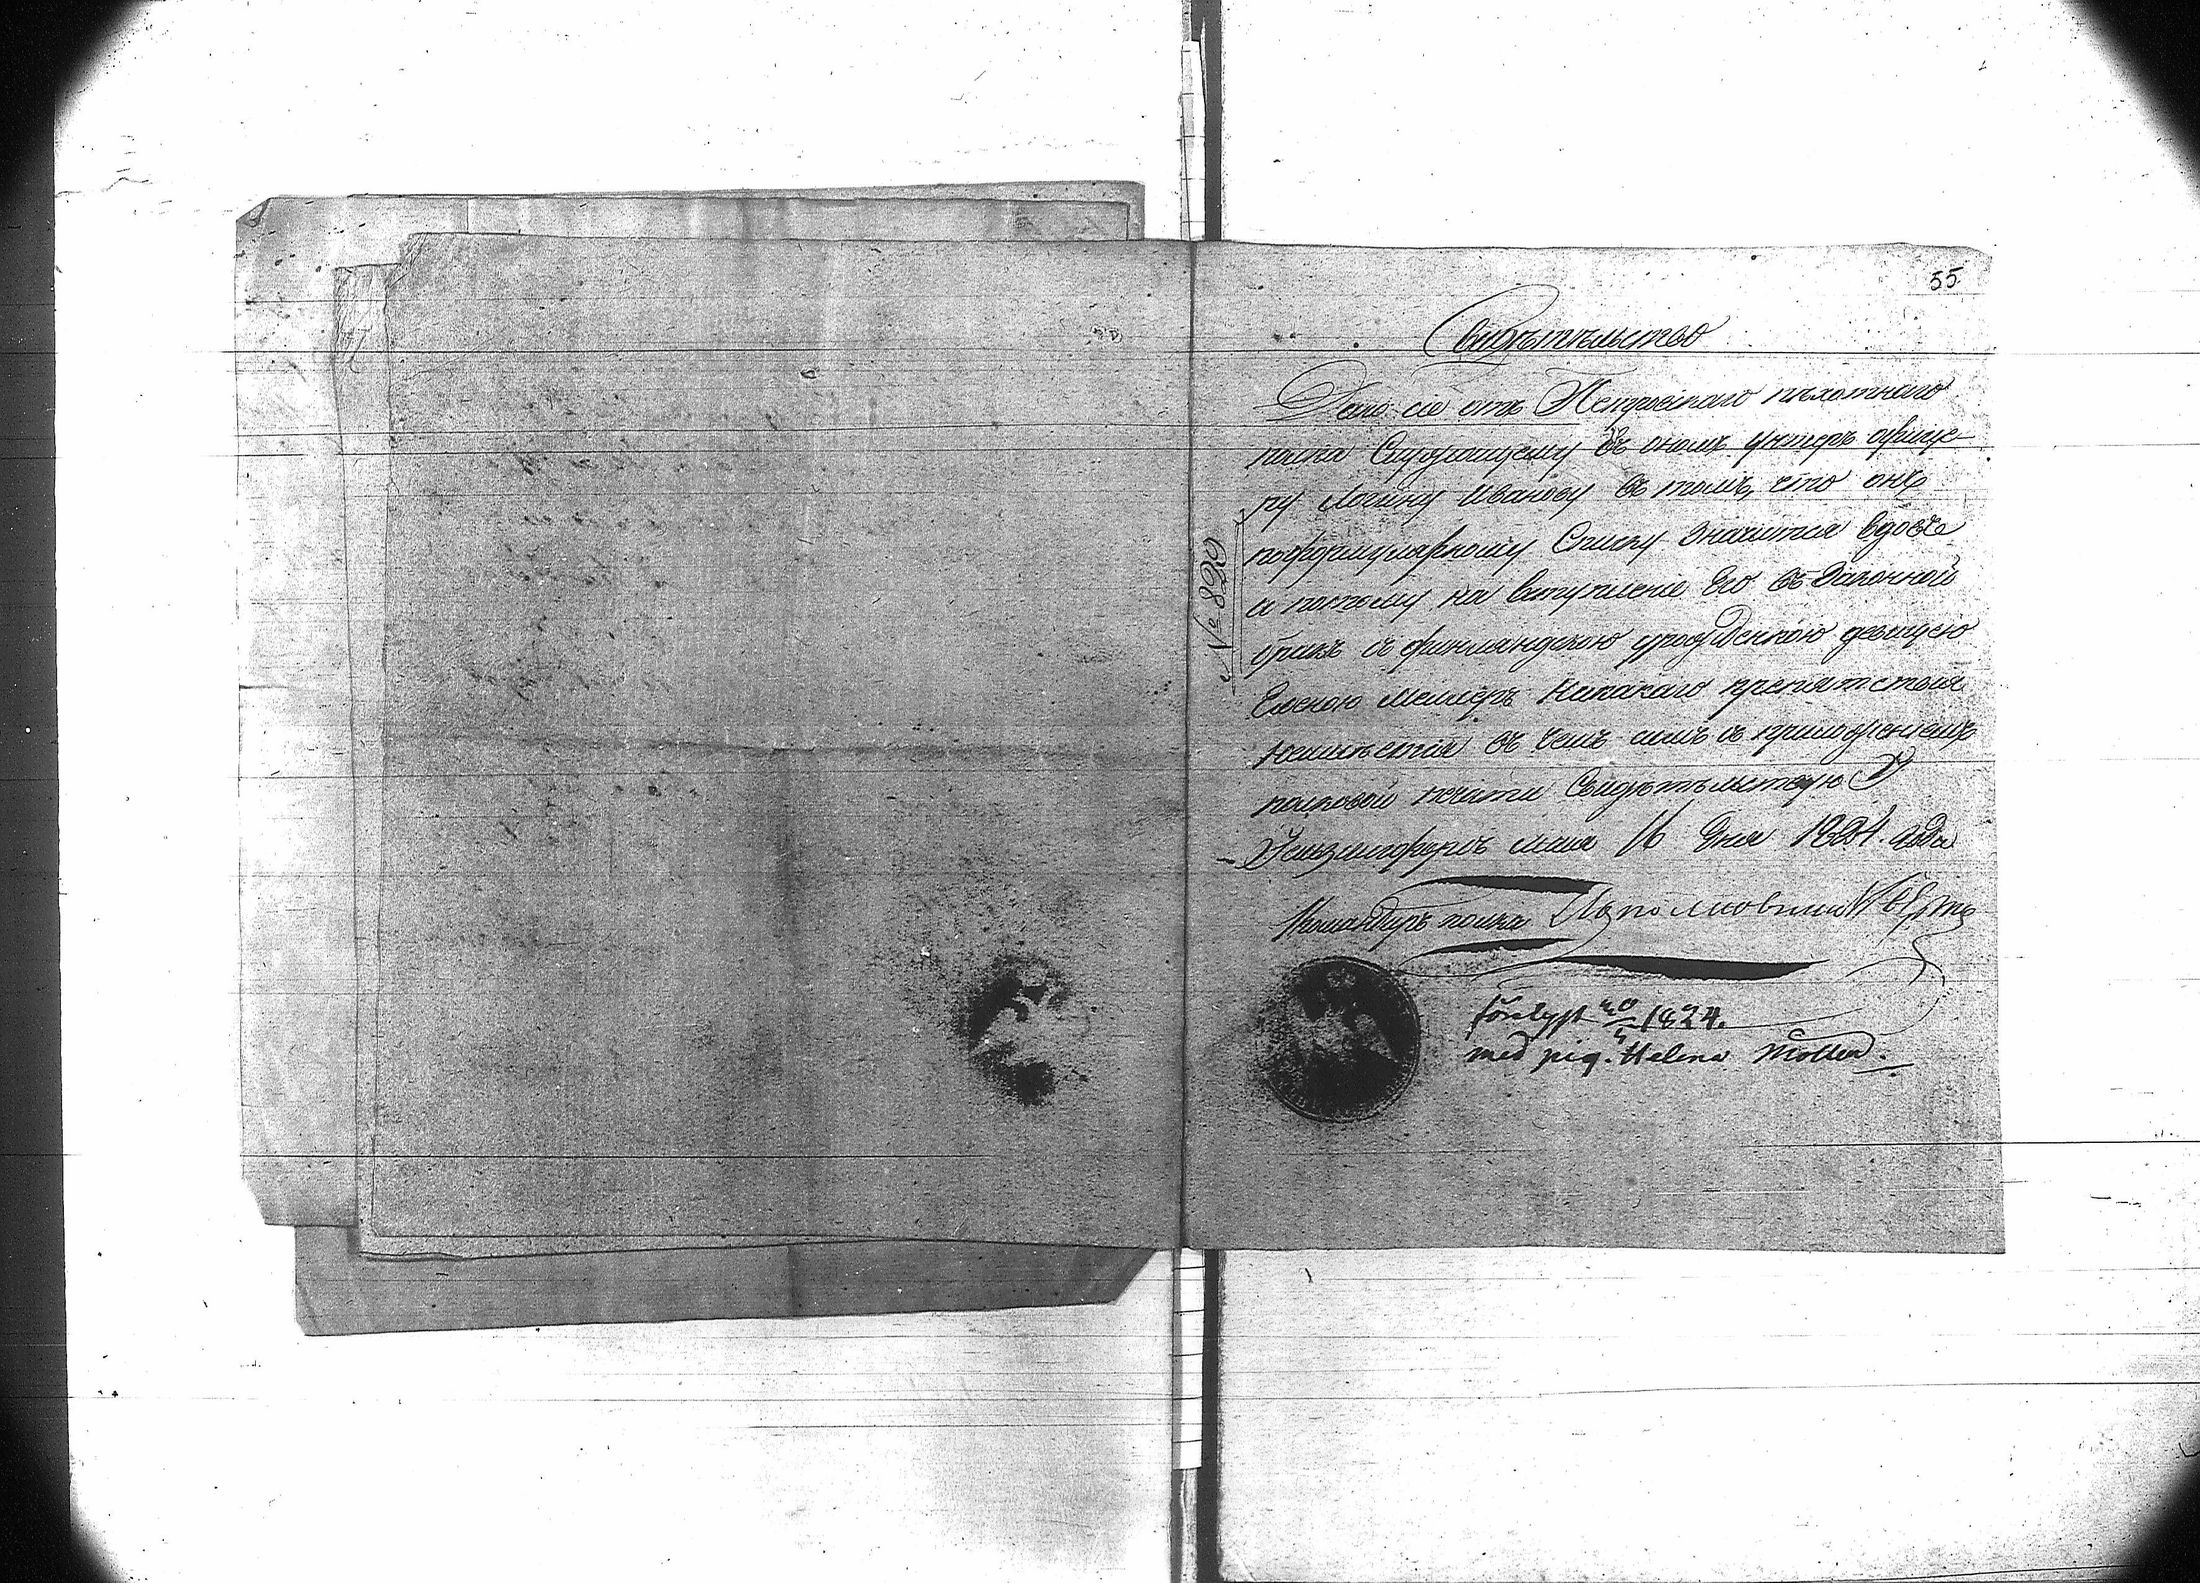 55
Свидѣтельство
Дано сіе отъ Петровскаго пѣхотнаго
полка Служащему въ ономъ унтеръ офице-
ру Логину Иванову въ томъ, что онъ
поформулярному Списку Значится вдовъ
и потому на вступление Его въ Законной
бракъ съ финляндскою урожденкою девицею
Еленою Меллеръ Никакаго препятствія
неимѣется въ чемъ симъ съ приложениемъ
полковой печати Свидѣтельствую
Гельзингфорсъ маія 16 Дня 1824. года
Командиръ полка Подполковникъ
№ 820
förelyst 1824.
med pig. Helena Möller.